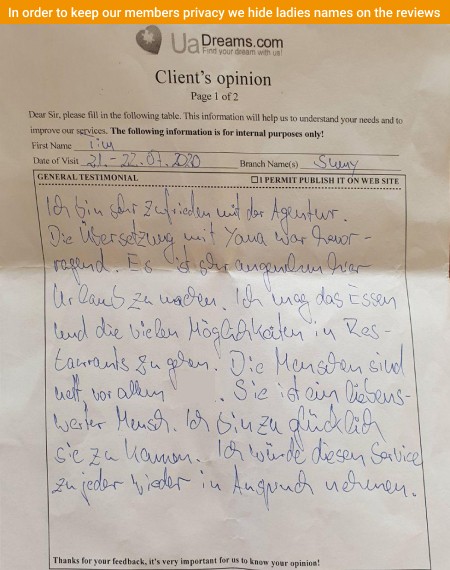 In order to keep our members privacy we hide ladies names on the reviews
UaDreams.com
Find your dream with us!
Client's opinion
Page 1 of 2
Dear Sir, please fill in the following table. This information will help us to understand your needs and to
improve our services. The following information is for internal purposes only!
First Name Tim
Date of Visit 21.-22.07.2020 Branch Name(s) Sumy
GENERAL TESTIMONIAL ☐I PERMIT PUBLISH IT ON WEB SITE
Ich bin sehr zufrieden mit der Agentur.
Die Übersetzung mit Yana war hervor-
ragend. Es ist sehr angenehm hier
Urlaub zu machen. Ich mag das Essen
und die vielen Möglichkeiten in Res-
taurants zu gehen. Die Menschen sind
nett, vor allem . Sie ist ein liebens-
werter Mensch. Ich bin zu glücklich
sie zu kennen. Ich würde diesen Service
zu jeder wieder in Anspruch nehmen.
Thanks for your feedback, it's very important for us to know your opinion!